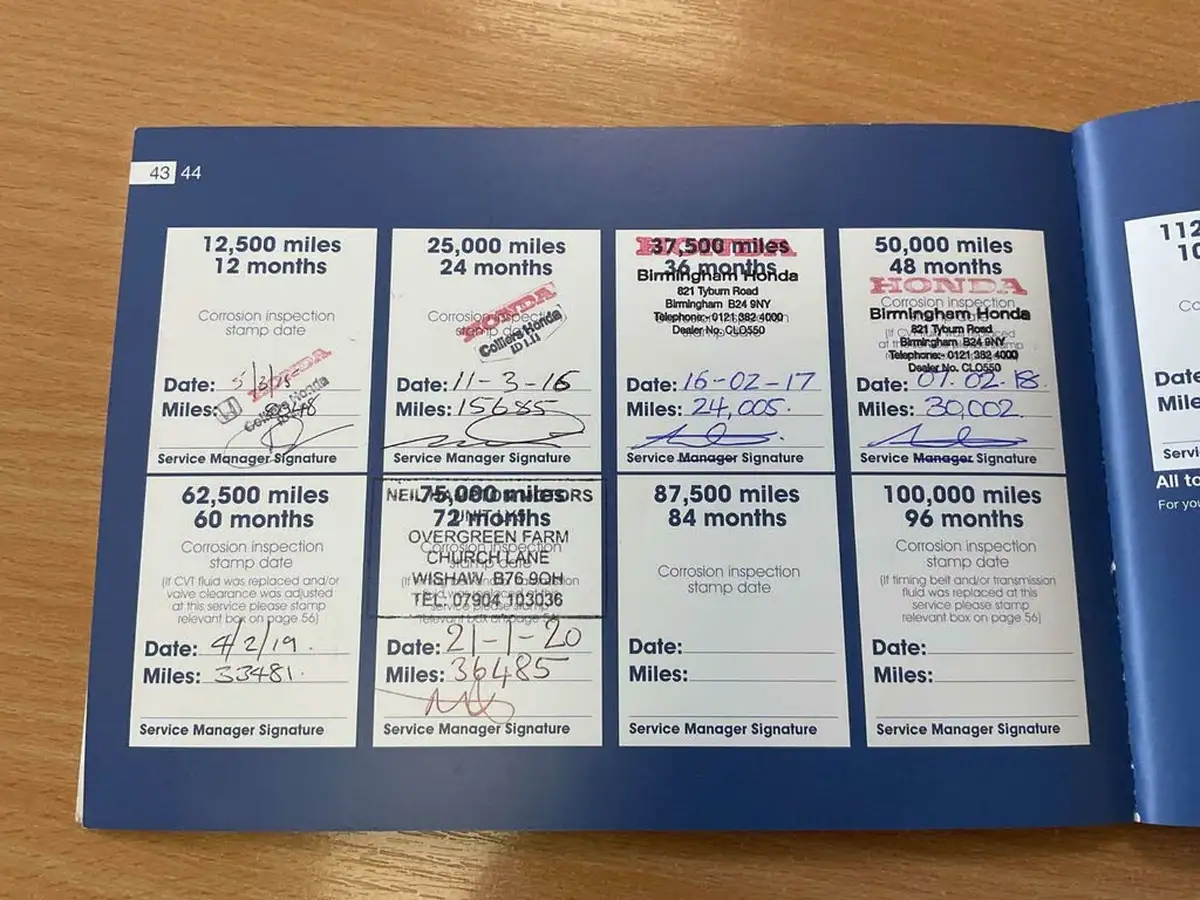 43 44
12,500 miles
12 months
Corrosion inspection
stamp date
HONDA
Colliers Honda
Date: 5/3/15
Miles:
Service Manager Signature
25,000 miles
24 months
Corrosion inspection
stamp date
HONDA
Colliers Honda
Date: 11-3-16
Miles: 15685
Service Manager Signature
HONDA
37,500 miles
36 months
Birmingham Honda
821 Tyburn Road
Birmingham B24 9NY
Telephone:- 0121 382 4000
Dealer No. CLO550
Date: 16-02-17
Miles: 24,005.
Service Manager Signature
50,000 miles
48 months
HONDA
Corrosion inspection
Birmingham Honda
821 Tyburn Road
Birmingham B24 9NY
Telephone:- 0121 382 4000
Dealer No. CLO550
Date: 07.02.18.
Miles: 30,002.
Service Manager Signature
62,500 miles
60 months
Corrosion inspection
stamp date
(If CVT fluid was replaced and/or
valve clearance was adjusted
at this service please stamp
relevant box on page 56)
Date: 4/2/19.
Miles: 33481.
Service Manager Signature
75,000 miles
72 months
OVERGREEN FARM
CHURCH LANE
WISHAW B76 9QH
TEL: 07904 103036
Corrosion inspection
stamp date
service please stamp
relevant box on page 56)
Date: 21-1-20
Miles: 36485
Service Manager Signature
87,500 miles
84 months
Corrosion inspection
stamp date
Date:
Miles:
Service Manager Signature
100,000 miles
96 months
Corrosion inspection
stamp date
(If timing belt and/or transmission
fluid was replaced at this
service please stamp
relevant box on page 56)
Date:
Miles:
Service Manager Signature
112
10
Date
Mile
Servi
All to
For you